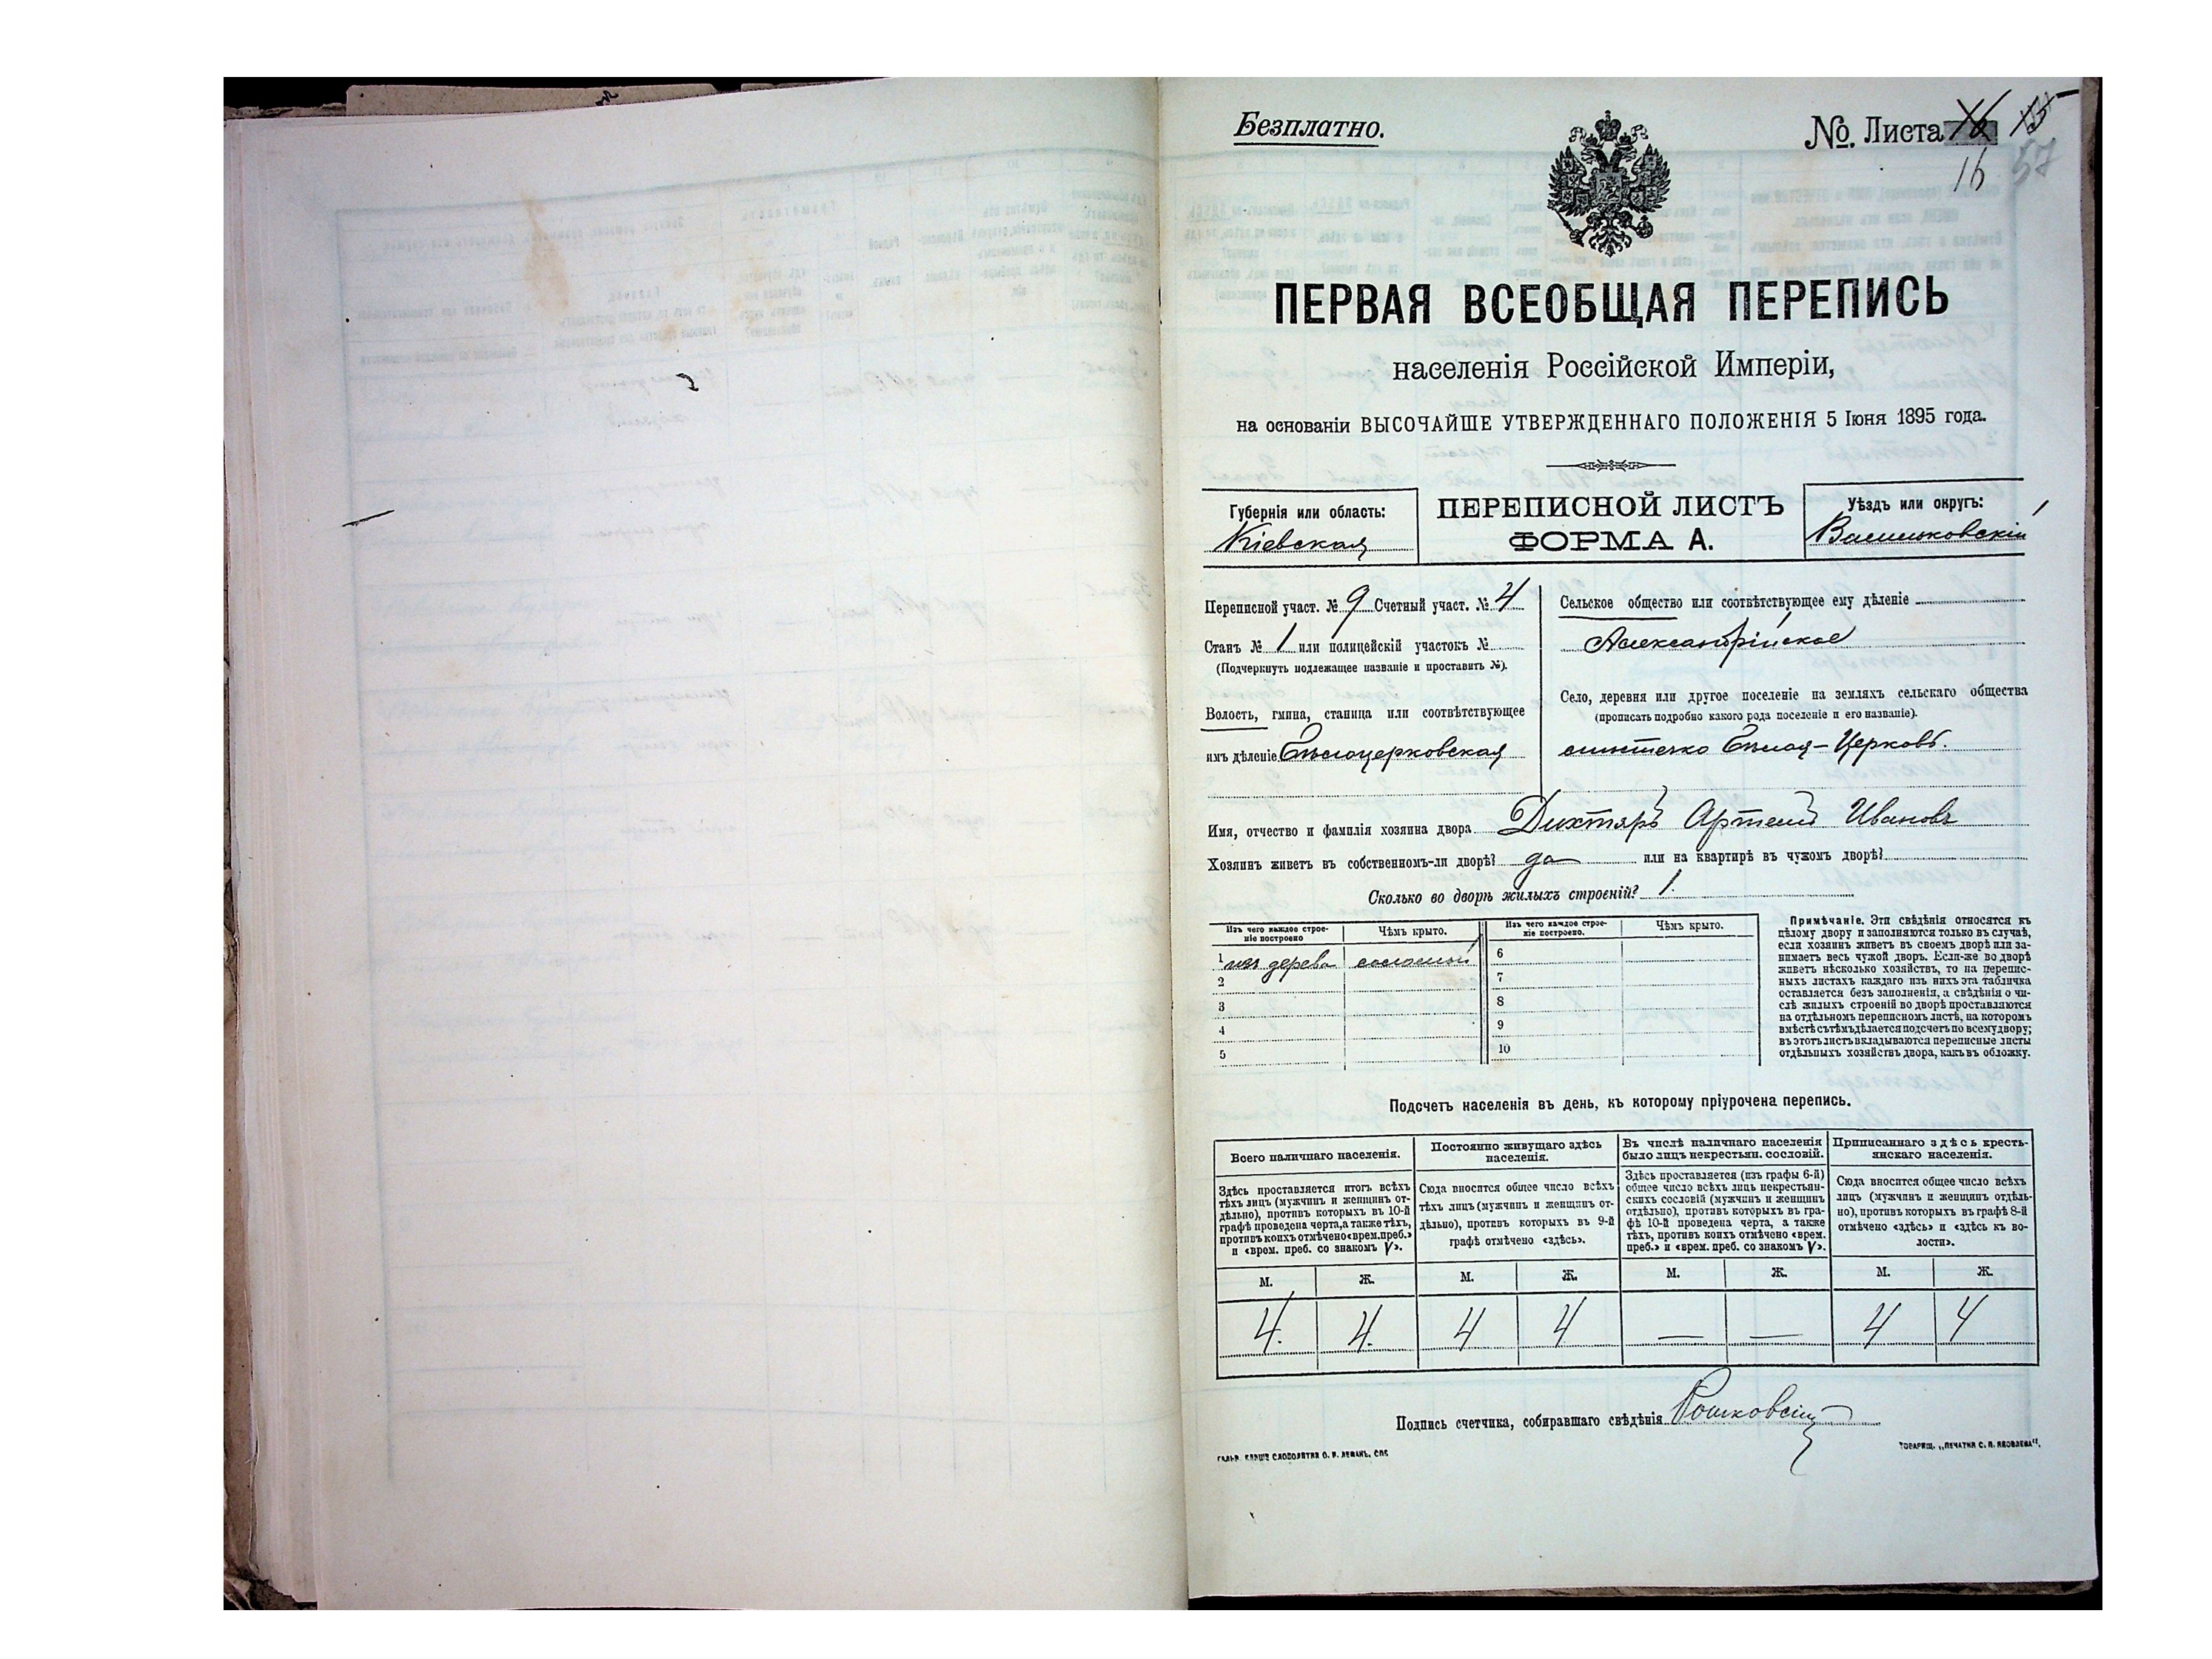 Безплатно.
№ Листа 16 57
ПЕРВАЯ ВСЕОБЩАЯ ПЕРЕПИСЬ
населенія Россійской Имперіи,
на основаніи ВЫСОЧАЙШЕ УТВЕРЖДЕННАГО ПОЛОЖЕНІЯ 5 Іюня 1895 года.
Губернія или область:
Кіевская
ПЕРЕПИСНОЙ ЛИСТЪ
ФОРМА А.
Уѣздъ или округъ:
Васильковскій
Переписной участ. № 9 Счетный участ. № 4
Станъ № 1 или полицейскій участокъ №
(Подчеркнуть подлежащее названіе и проставить №).
Волость, гмина, станица или соотвѣтствующее
имъ дѣленіе Бѣлоцерковская
Сельское общество или соотвѣтствующее ему дѣленіе
Александрійское
Село, деревня или другое поселеніе на земляхъ сельскаго общества
(прописать подробно какого рода поселеніе и его названіе).
мѣстечко Бѣлая-Церковь.
Имя, отчество и фамилія хозяина двора Дихтярь Артемій Ивановъ
Хозяинъ живетъ въ собственномъ-ли дворѣ? да или на квартирѣ въ чужомъ дворѣ?
Сколько во дворѣ жилыхъ строеній? 1.
Изъ чего каждое строеніе построено
Чѣмъ крыто.
Изъ чего каждое строеніе построено.
Чѣмъ крыто.
1 изъ дерева соломой
2
3
4
5
6
7
8
9
10
Примѣчаніе. Эти свѣдѣнія относятся къ
цѣлому двору и заполняются только въ случаѣ,
если хозяинъ живетъ въ своемъ дворѣ или за-
нимаетъ весь чужой дворъ. Если-же во дворѣ
живетъ нѣсколько хозяйствъ, то на перепис-
ныхъ листахъ каждаго изъ нихъ эта табличка
оставляется безъ заполненія, а свѣдѣнія о чи-
слѣ жилыхъ строеній во дворѣ проставляются
на отдѣльномъ переписномъ листѣ, на которомъ
вмѣстѣ съ тѣмъ дѣлается подсчетъ по всему двору;
въ этотъ листъ вкладываются переписные листы
отдѣльныхъ хозяйствъ двора, какъ въ обложку.
Подсчетъ населенія въ день, къ которому пріурочена перепись.
Всего наличнаго населенія.
Здѣсь проставляется итогъ всѣхъ
тѣхъ лицъ (мужчинъ и женщинъ от-
дѣльно), противъ которыхъ въ 10-й
графѣ проведена черта, а также тѣхъ,
противъ коихъ отмѣчено «врем. преб.»
и «врем. преб. со знакомъ V».
Постоянно живущаго здѣсь
населенія.
Сюда вносится общее число всѣхъ
тѣхъ лицъ (мужчинъ и женщинъ от-
дѣльно), противъ которыхъ въ 9-й
графѣ отмѣчено «здѣсь».
Въ числѣ наличнаго населенія
было лицъ некрестьян. сословій.
Здѣсь проставляется (изъ графы 6-й)
общее число всѣхъ лицъ некрестьян-
скихъ сословій (мужчинъ и женщинъ
отдѣльно), противъ которыхъ въ гра-
фѣ 10-й проведена черта, а также
тѣхъ, противъ коихъ отмѣчено «врем.
преб.» и «врем. преб. со знакомъ V».
Приписаннаго здѣсь кресть-
янскаго населенія.
Сюда вносится общее число всѣхъ
лицъ (мужчинъ и женщинъ отдѣль-
но), противъ которыхъ въ графѣ 8-й
отмѣчено «здѣсь» и «здѣсь къ во-
лости».
М. Ж. М. Ж. М. Ж. М. Ж.
4. 4. 4 4 — — 4 4
Подпись счетчика, собиравшаго свѣдѣнія
ТОВАРИЩ. „ПЕЧАТНЯ С. П. ЯКОВЛЕВА“.